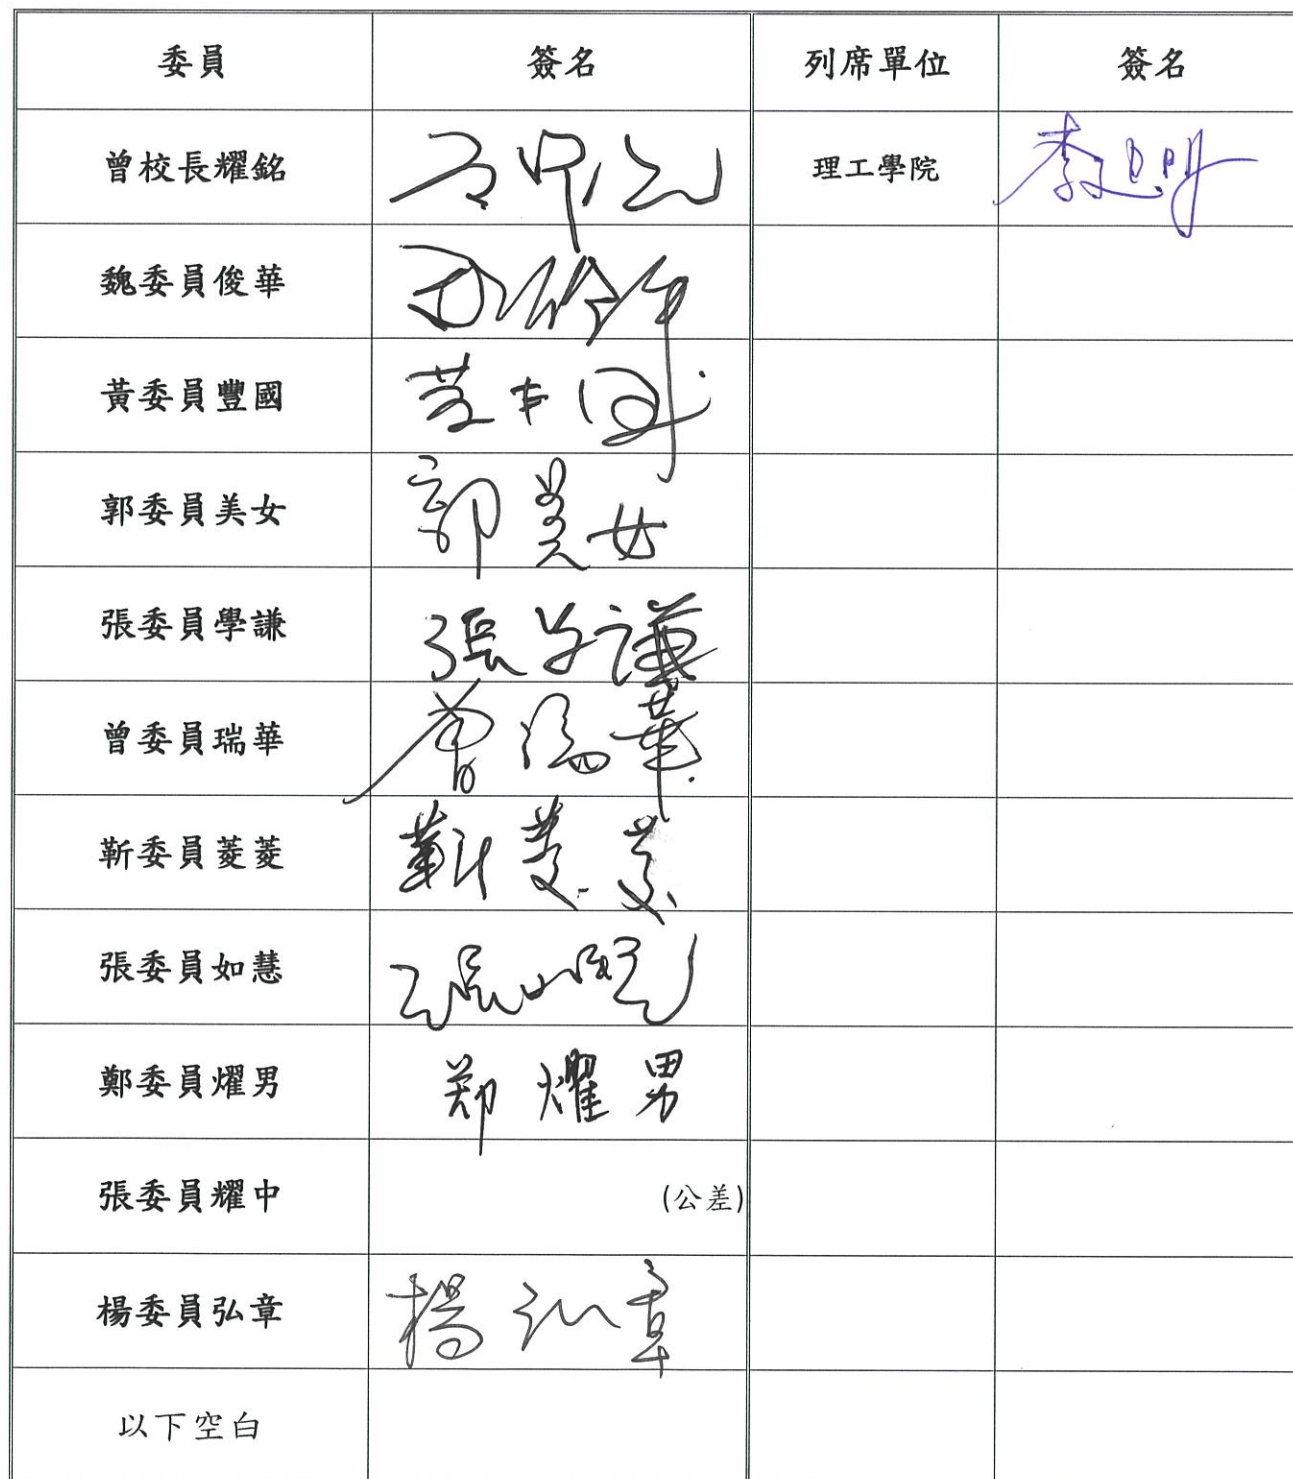 委員 簽名 列席單位 簽名
曾校長耀銘 理工學院
魏委員俊華
黃委員豐國
郭委員美女 郭美女
張委員學謙 張学謙
曾委員瑞華 曾瑞華
靳委員菱菱 靳菱菱
張委員如慧
鄭委員燿男 郑燿男
張委員耀中 (公差)
楊委員弘章 楊弘章
以下空白